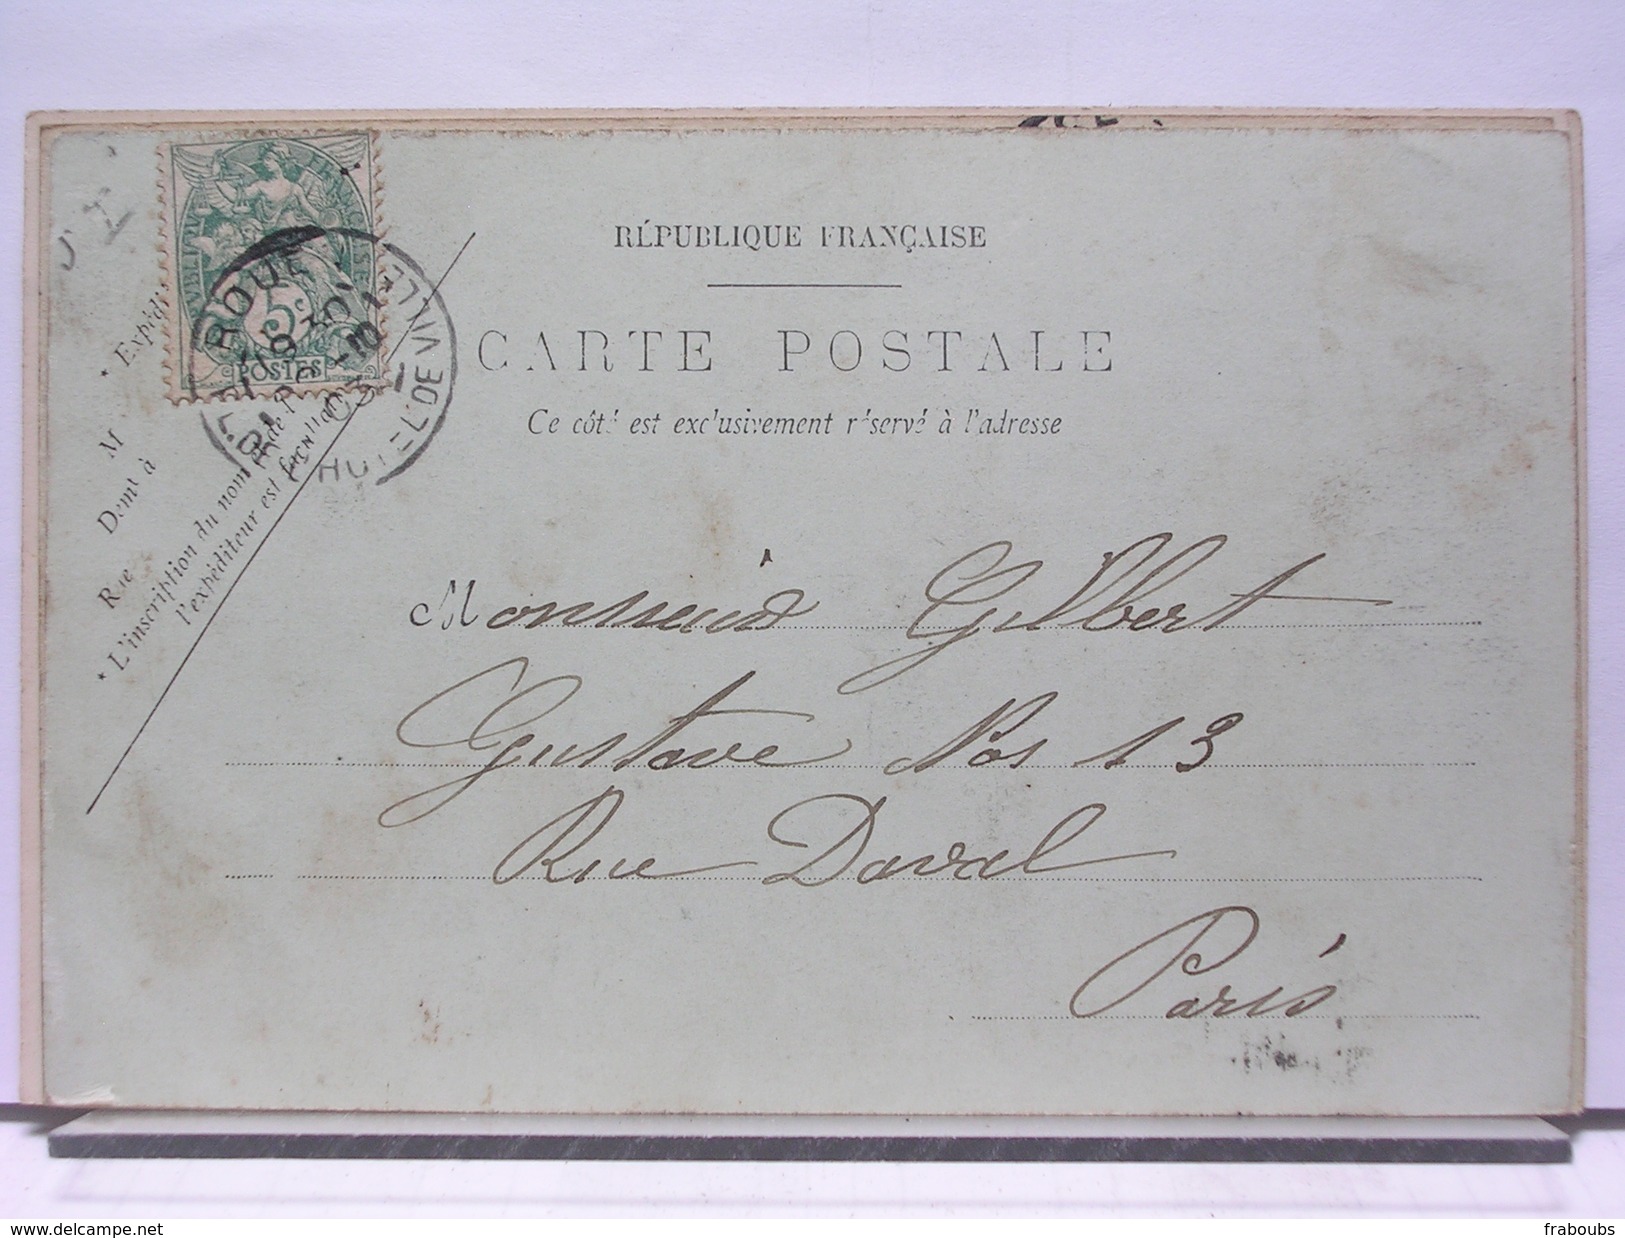 RÉPUBLIQUE FRANÇAISE
CARTE POSTALE
Ce côté est exclusivement réservé à l'adresse
RÉPUBLIQUE FRANÇAISE
5c
POSTES
HOTEL DE VILLE
* Expédi
M
Demt à
Rue
* L'inscription du nom de
l'expéditeur est facultat
Monsieur Gilbert
Gustave Nos 13
Rue Daval
Paris
www.delcampe.net
fraboubs